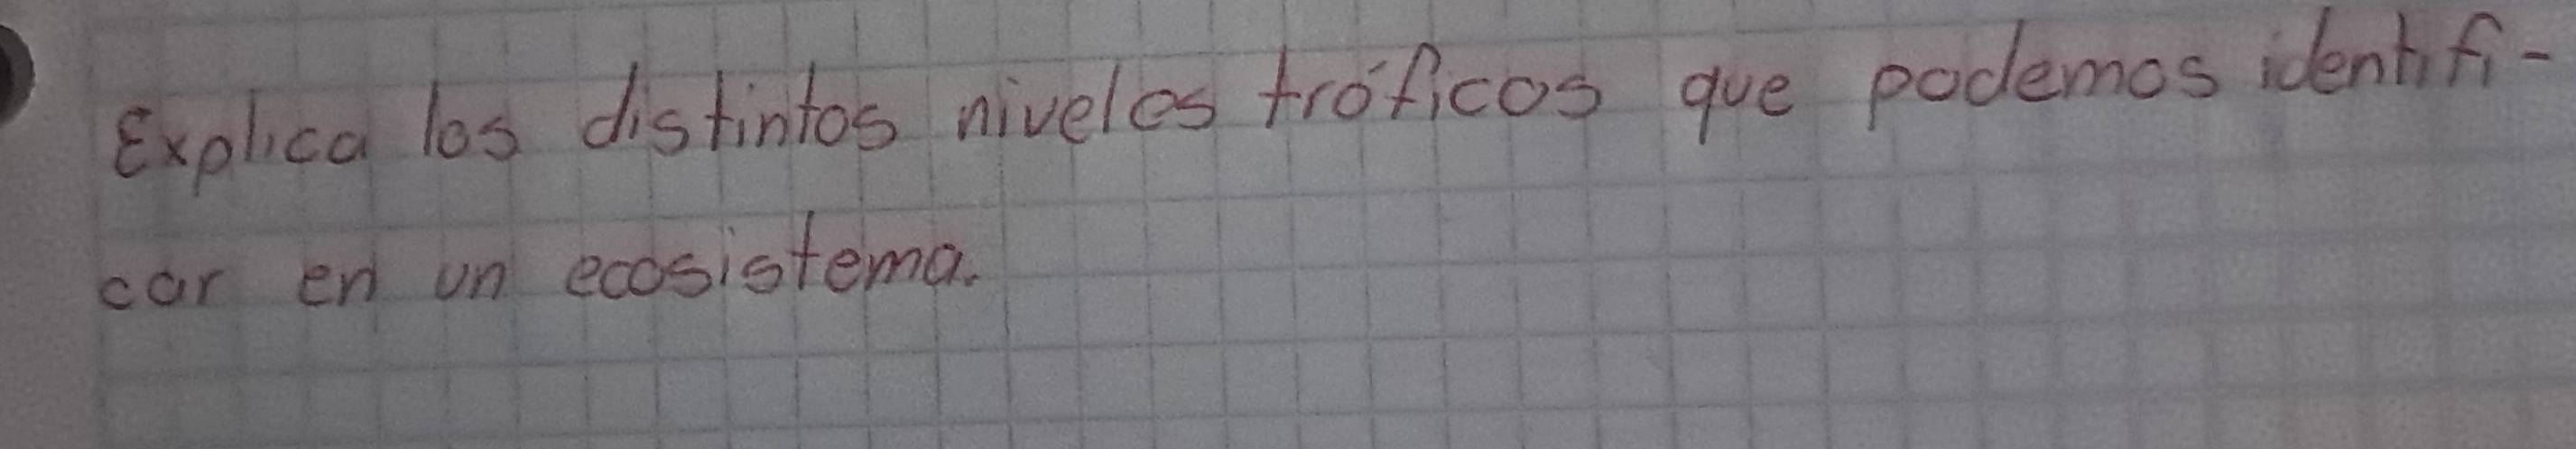 Explica los distintos niveles tróficos que podemos identifi-
car en un ecosistema.